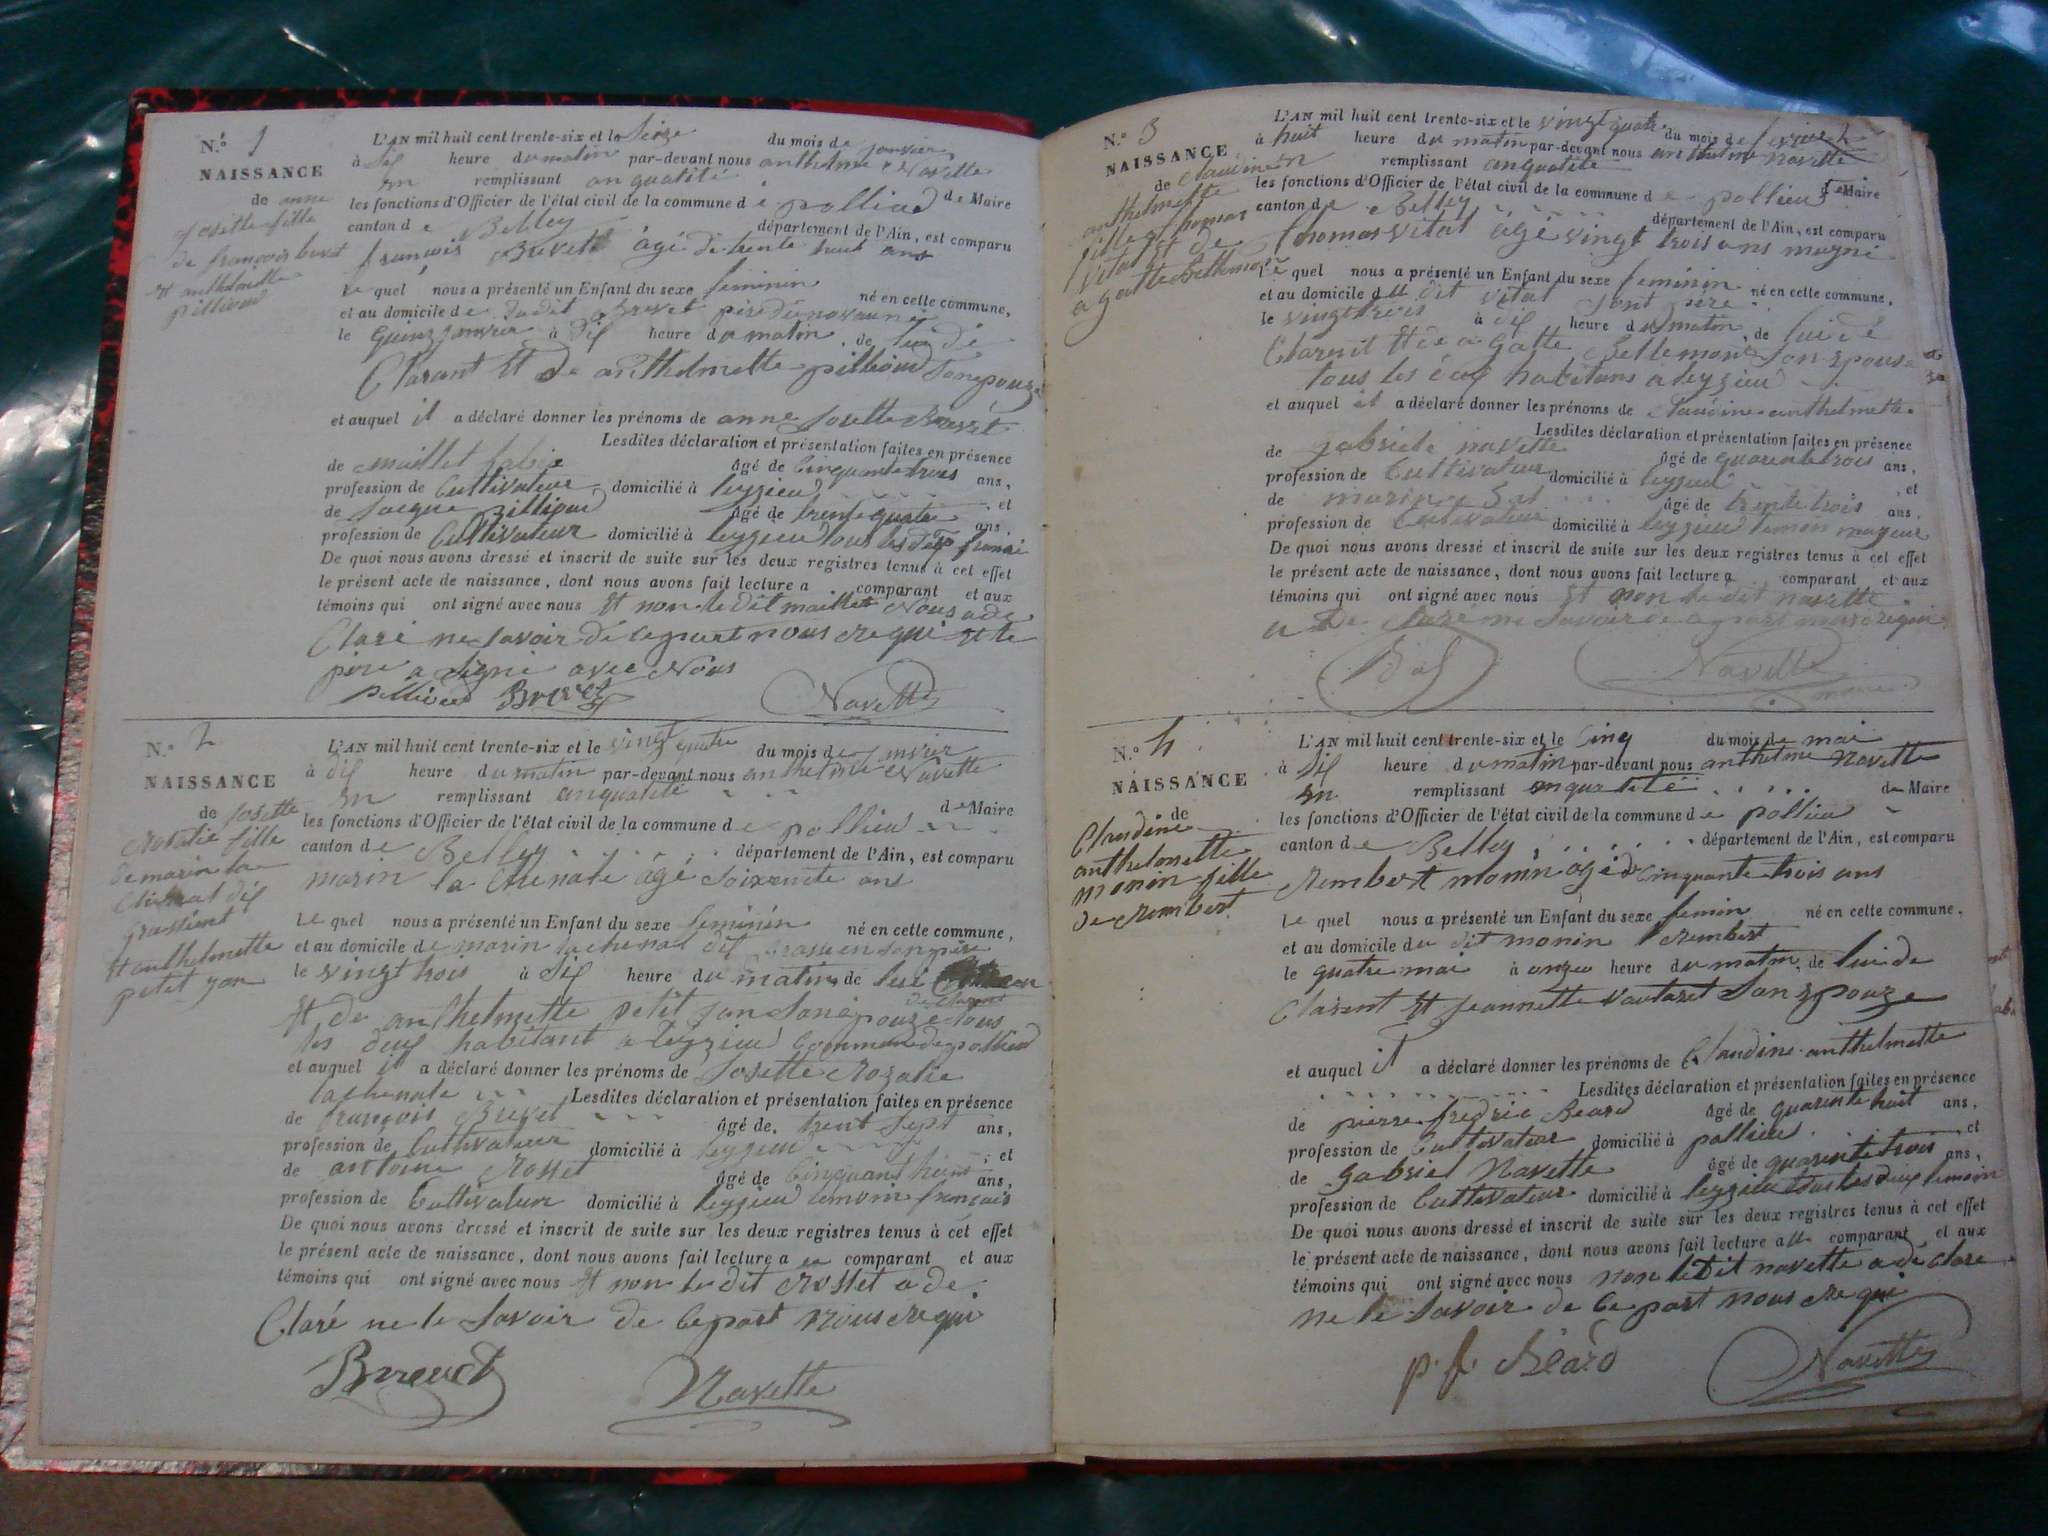 N.º 1
NAISSANCE
de anne
josette fille
de françois brevet
et anthelmette
pillioud
L'AN mil huit cent trente-six et le Seize du mois de janvier
à dix heure du matin par-devant nous anthelme Navette
remplissant en qualité de Maire
les fonctions d'Officier de l'état civil de la commune de pollieu
canton de Belley département de l'Ain, est comparu
françois Brevet âgé de trente huit ans
Lequel nous a présenté un Enfant du sexe feminin né en cette commune,
et au domicile de du dit Brevet père du nouveau né
le quinz janvier à dix heure du matin, de lui dé
Clarant et de anthelmette pillioud Son epouze
et auquel il a déclaré donner les prénoms de anne Josette Brevet
Lesdites déclaration et présentation faites en présence
de maillet âgé de Cinquante trois ans,
profession de Cultivateur domicilié à leyzieu et
de Jacque pillioud âgé de trente quatre ans,
profession de Cultivateur domicilié à leyzieu tous les deux
De quoi nous avons dressé et inscrit de suite sur les deux registres tenus à cet effet
le présent acte de naissance, dont nous avons fait lecture a comparant et aux
témoins qui ont signé avec nous et non le dit maillet Nous a dé
Claré ne Savoir de cepart nous requi et le
père a Signé avec Nous
pillioud Brevet Navette
N.º 2
NAISSANCE
de Josette
Rosalie fille
de marin la
Chenal dit
et anthelmette
petit jan
L'AN mil huit cent trente-six et le vingt quatre du mois de Janvier
à dix heure du matin par-devant nous anthelme Navette
remplissant en qualité de Maire
les fonctions d'Officier de l'état civil de la commune de pollieu
canton de Belley département de l'Ain, est comparu
marin la Chenale âgé Soixante ans
Le quel nous a présenté un Enfant du sexe feminin né en cette commune,
et au domicile de marin lachenal dit son père
le vingt trois à dix heure du matin, de lui
declarant
et de anthelmette petit jan Son epouze tous
les deux habitant a leyzieu Commune de pollieu
et auquel il a déclaré donner les prénoms de Josette Rozalie
lachenale Lesdites déclaration et présentation faites en présence
de françois Brevet âgé de trent Sept ans,
profession de Cultivateur domicilié à leyzieu et
de antoine Rosset âgé de Cinquant ans,
profession de Cultivateur domicilié à leyzieu temoin français
De quoi nous avons dressé et inscrit de suite sur les deux registres tenus à cet effet
le présent acte de naissance, dont nous avons fait lecture a comparant et aux
témoins qui ont signé avec nous et non le dit Rosset a dé
Claré ne le Savoir de Cepart Nous requi
Brevet Navette
N.º 3
NAISSANCE
de Claudine
anthelmette
fille thomas
Vital et de
agatte Bellemont
L'AN mil huit cent trente-six et le vingt quatre du mois de fevrier
à huit heure du matin par-devant nous anthelme Navette
remplissant en qualité de Maire
les fonctions d'Officier de l'état civil de la commune de pollieu
canton de Belley département de l'Ain, est comparu
thomas vital âgé vingt trois ans
Le quel nous a présenté un Enfant du sexe feminin né en cette commune,
et au domicile du dit vital Sont père
le vingt trois à dix heure du matin, de lui dé
Clarent et de agatte Bellemont Son epouse
tous les deux habitans a leyzieu
et auquel il a déclaré donner les prénoms de Claudine anthelmette
Lesdites déclaration et présentation faites en présence
de gabriele navette âgé de quarante trois ans,
profession de Cultivateur domicilié à leyzieu et
de marin âgé de trente trois ans,
profession de Cultivateur domicilié à leyzieu temoin majeur
De quoi nous avons dressé et inscrit de suite sur les deux registres tenus à cet effet
le présent acte de naissance, dont nous avons fait lecture a comparant et aux
témoins qui ont signé avec nous et non le dit navette
a de claré ne Savoir de cepart nous requi
Navette
maire
N.º 4
NAISSANCE
de
Claudine
anthelmette
monin fille
de rembert
L'AN mil huit cent trente-six et le Cinq du mois de mai
à dix heure du matin par-devant nous anthelme Navette
remplissant en qualité de Maire
les fonctions d'Officier de l'état civil de la commune de pollieu
canton de Belley département de l'Ain, est comparu
rembert monin âgé de Cinquante trois ans
Le quel nous a présenté un Enfant du sexe femin né en cette commune,
et au domicile du dit monin rembert
le quatre mai à onze heure du matin, de lui de
Clarent et Jeannette vautaret Son epouze
et auquel il a déclaré donner les prénoms de Claudine anthelmette
Lesdites déclaration et présentation faites en présence
de pierre fredric Beard âgé de quarente huit ans,
profession de Cultivateur domicilié à pollieu et
de gabriel Navette âgé de quarente trois ans,
profession de Cultivateur domicilié à leyzieu tous les deux temoin
De quoi nous avons dressé et inscrit de suite sur les deux registres tenus à cet effet
le présent acte de naissance, dont nous avons fait lecture au comparant et aux
témoins qui ont signé avec nous non le dit navette a dé clare
ne le Savoir de Ce part nous requi
p. f. Béard Navette